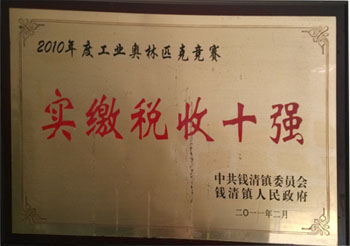 2010年度工业奥林匹克竞赛
实缴税收十强
中共钱清镇委员会
钱清镇人民政府
二〇一一年二月